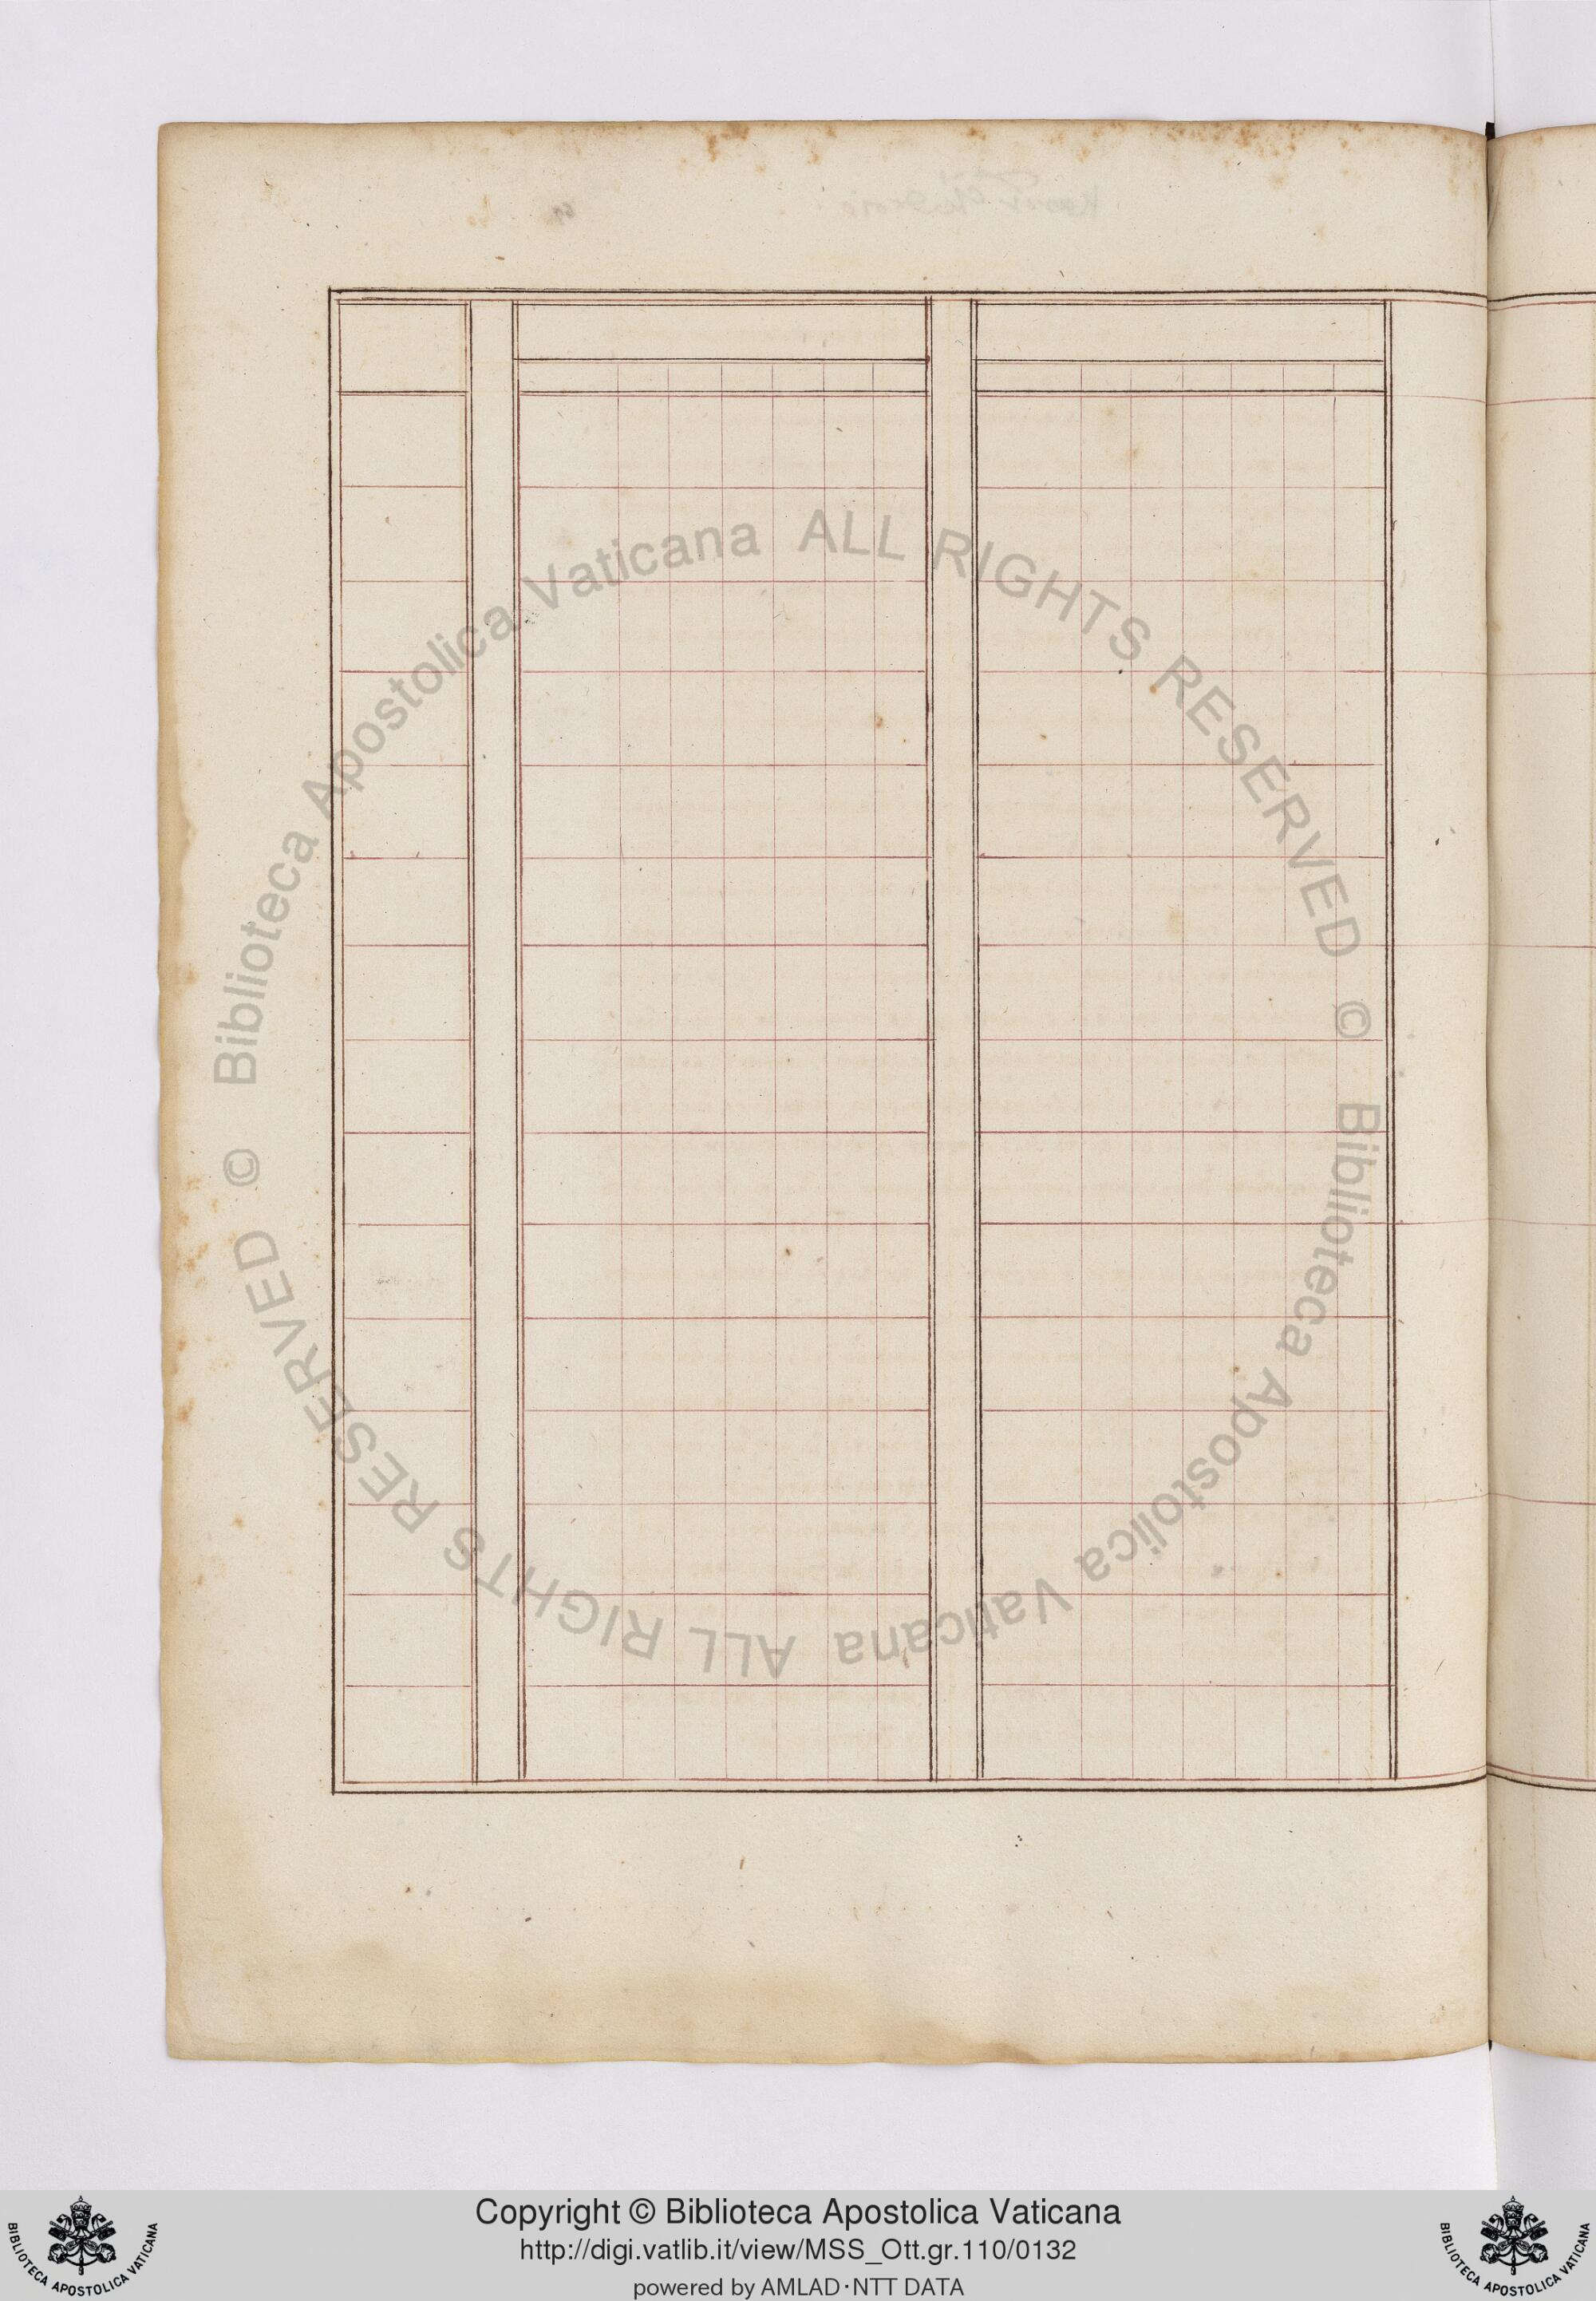 © Biblioteca Apostolica Vaticana ALL RIGHTS RESERVED
© Biblioteca Apostolica Vaticana ALL RIGHTS RESERVED
Copyright © Biblioteca Apostolica Vaticana
http://digi.vatlib.it/view/MSS_Ott.gr.110/0132
powered by AMLAD·NTT DATA
BIBLIOTECA APOSTOLICA VATICANA
BIBLIOTECA APOSTOLICA VATICANA